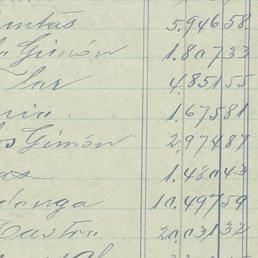 untas 5.946 58
Gimón 1.807 33
Tlar 4.851 55
ria 1.675 81
os Gimón 2.974 87
as 1.480 43
danga 10.497 59
Castro 20.031 32